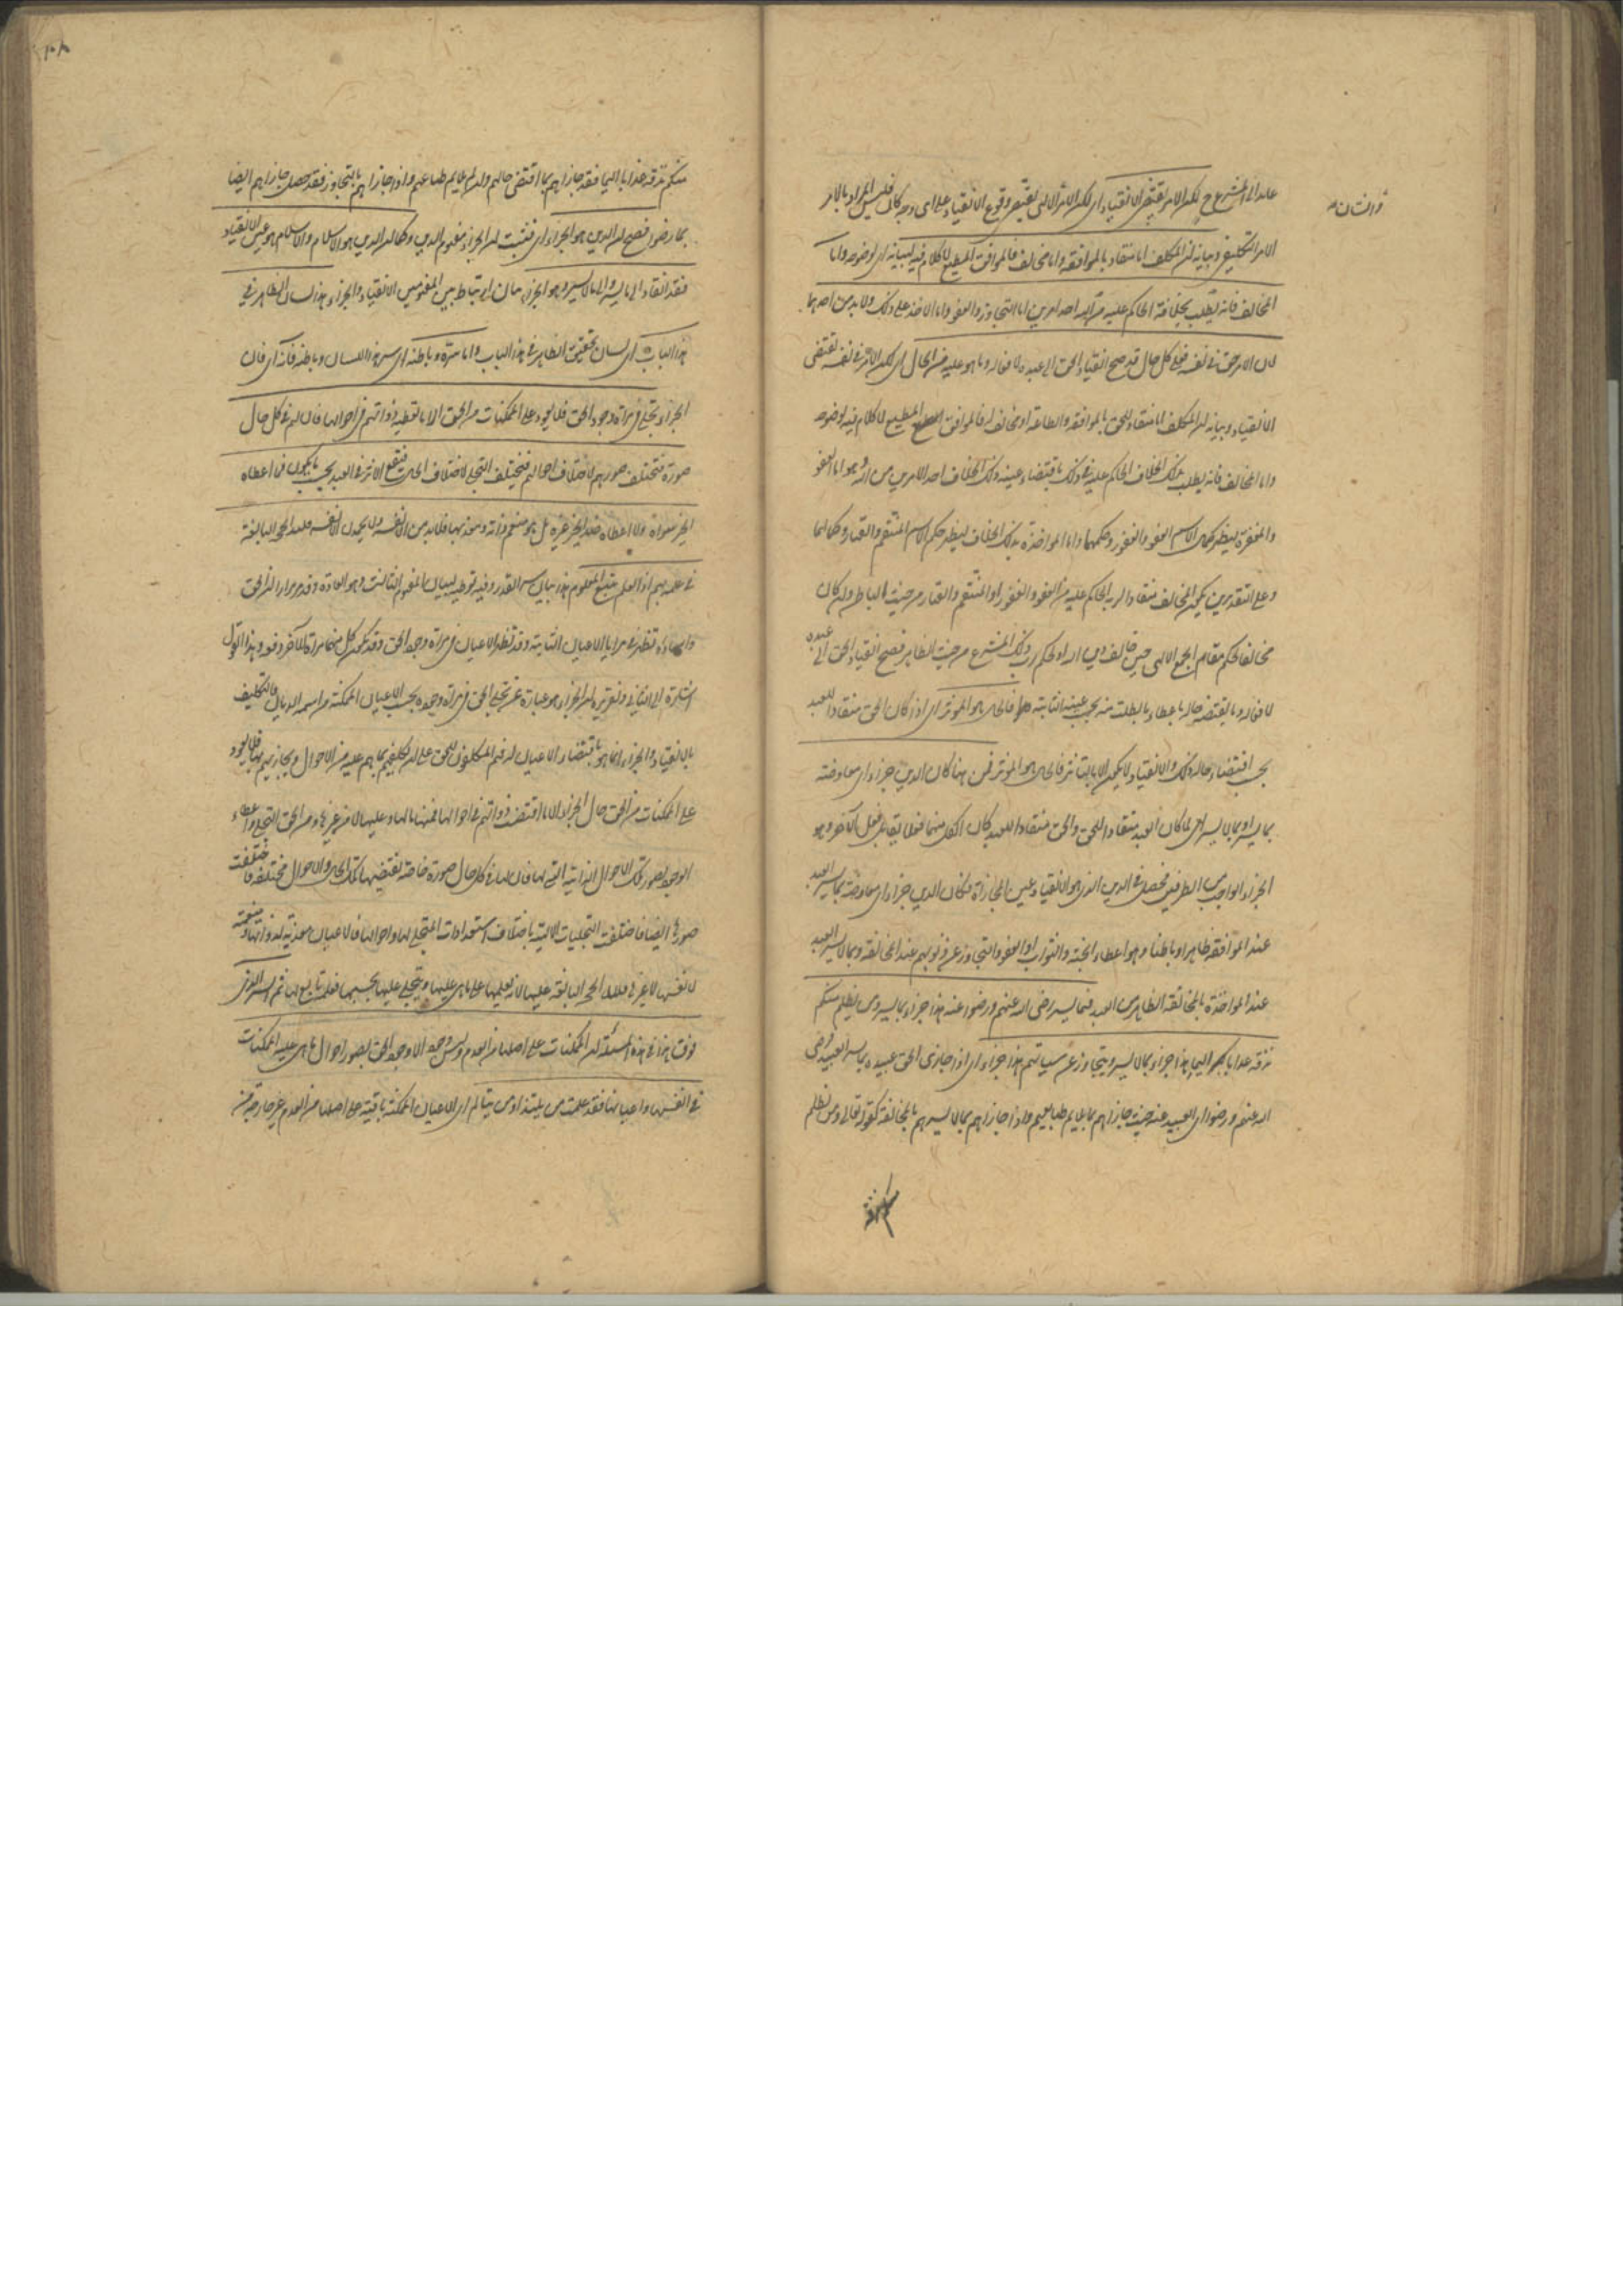 عائد الى المشرع ح لكن الامر يقتضى الانقياد اى لكن الامر الالهى يقتضى وقوع الانقياد على اى وجه كان فليس المراد بالامر
والشان
الامر التكليفى وبيانه ان المكلف اما منقاد بالموافقة واما مخالف فالموافق المطيع لا كلام فيه لبيانه اى لوضوحه واما
المخالف فانه يطلب بخلافه الحاكم عليه من الله احد امرين اما التجاوز والعفو واما الاخذ على ذلك ولا بد من احدهما
لان الامر حق فى نفسه فعلى كل حال قد صح انقياد الحق الى عبده لافعاله وما هو عليه من الحال اى لكن الامر فى نفسه يقتضى
الانقياد وبيانه ان المكلف اما منقاد للحق بالموافقة والطاعة او مخالف له فالموافق المطيع لا كلام فيه لوضوحه
واما المخالف فانه يطلب بذلك الخلاف الحاكم عليه فى ذلك باقتضاء عينه ذلك الخلاف احد الامرين من الله وهو اما العفو
والمغفرة ليظهر كمال الاسم العفو والغفور وحكمهما واما المؤاخذة بذلك الخلاف ليظهر حكم الاسم المنتقم والقهار وكمالهما
وعلى التقديرين يكون المخالف منقادا لربه الحاكم عليه من العفو والغفور او المنتقم والقهار من حيث الباطن وان كان
مخالفا لحكم مقام الجمع الالهى حين خالف امر الله او لحكم رب ذلك المشرع من حيث الظاهر فصح انقياد الحق الى عبده
لافعاله وما يقتضيه حاله باعطاء ما يطلب منه بحسب عينه الثابتة فالحال هو المؤثر اى اذا كان الحق منقادا للعبد
بحسب اقتضاء حاله ذلك والانقياد لا يكون الا بالتاثر فالحال هو المؤثر فمن هنا كان الدين جزاء اى معاوضة
بما يسر او بما لا يسر اى لما كان العبد منقادا للحق والحق منقادا للعبد كان لكل منهما فعل يقابل فعل الآخر وهو
الجزاء الواجب من الطرفين فحصل فى الدين الذى هو الانقياد عين المجازاة فكان الدين جزاء اى معاوضة بما يسر العبد
عند الموافقة ظاهرا وباطنا وهو اعطاء الجنة والثواب او العفو والتجاوز عن ذنوبهم عند المخالفة وبما لا يسر العبد
عند المؤاخذة بالمخالفة الظاهرة من العبد فبما يسر رضى الله عنهم ورضوا عنه هذا جزاء بما يسر ومن يظلم منكم
نذقه عذابا كبيرا هذا جزاء بما لا يسر ويتجاوز عن سيئاتهم هذا جزاء اى اذا جازى الحق عبيده بما يسر العبيد رضى
الله عنهم ورضوا اى العبيد عنه حيث جازاهم بما يلايم طبايعهم واذا جازاهم بما لا يسرهم بالمخالفة كقوله تعالى ومن يظلم
منكم
١٠٨
منكم نذقه عذابا اليما فقد جازاهم بما اقتضى حالهم وان لم يلايم طباعهم واذا جازاهم بالتجاوز فقد حصل جازاهم ايضا
بما رضوا فصح ان الدين هو الجزاء اى فثبت ان الجزاء مفهوم الدين وكما ان الدين هو الاسلام والاسلام هو عين الانقياد
فقد انقاد الى ما يسر والى ما لا يسر وهو الجزاء بيان ارتباط بين المفهومين الانقياد والجزاء هذا لسان الظاهر فى
هذا الباب اى لسان تحقيق الظاهر فى هذا الباب واما سره وباطنه اى سر هذا اللسان وباطنه فانه اى فان
الجزاء تجلى فى مرآة وجود الحق فلا يعود على الممكنات من الحق الا ما تعطيه ذواتهم فى احوالها فان لهم فى كل حال
صورة فتختلف صورهم لاختلاف احوالهم فيختلف التجلى لاختلاف الحال فيقع الاثر فى العبد بحسب ما يكون فما اعطاه
الخير سواه ولا اعطاه ضد الخير غيره بل هو منعم ذاته ومعذبها فلا يذمن الا نفسه ولا يحمدن الا نفسه فلله الحجة البالغة
فى علمه بهم اذ العلم يتبع المعلوم هذا بيان سر القدر وفيه توطئة لبيان المفهوم الثالث وهو العادة وقد مر مرارا ان الحق
واسماءه تظهر فى مرايا الاعيان الثابتة وقد تظهر الاعيان فى مرآة وجود الحق وقد يكون كل منهما مرآة للآخر وهذا القول
اشارة الى الثانى وتقريره ان الجزاء هو عبارة عن تجلى الحق فى مرآة وجوده بحسب الاعيان الممكنة من اسمه الديان فالتكليف
بالانقياد والجزاء انما هو باقتضاء الاعيان لذلك فهم المكلفون للحق على ان يكلفهم بما هم عليه من الاحوال ويجازيهم بها فلا يعود
على الممكنات من الحق حال الجزاء الا ما اقتضت ذواتهم فى احوالها فمنها ما لها وعليها لا من غيرها ومن الحق التجلى واعطاء
الوجود لصور تلك الاحوال الذاتية التى لها فان لها فى كل حال صورة خاصة تقتضيها تلك الحال والاحوال مختلفة فاختلفت
صورها ايضا فاختلفت التجليات الالهية باختلاف استعدادات المتجلى لها واحوالها فالاعيان معذبة لذواتها ومنعمة
لانفسها لا غيرها فلله الحجة البالغة عليها لانه يعلمها على ما هى عليها ويتجلى عليها بحسبها فعلمه تابع لها ثم السر الذى
فوق هذا فى هذه المسئلة ان الممكنات على اصلها من العدم وليس وجود الا وجود الحق بصور احوال ما هى عليه الممكنات
فى انفسها واعيانها فقد علمت من يلتذ او من يتألم اى الاعيان الممكنة باقية على اصلها من العدم غير خارجة منه